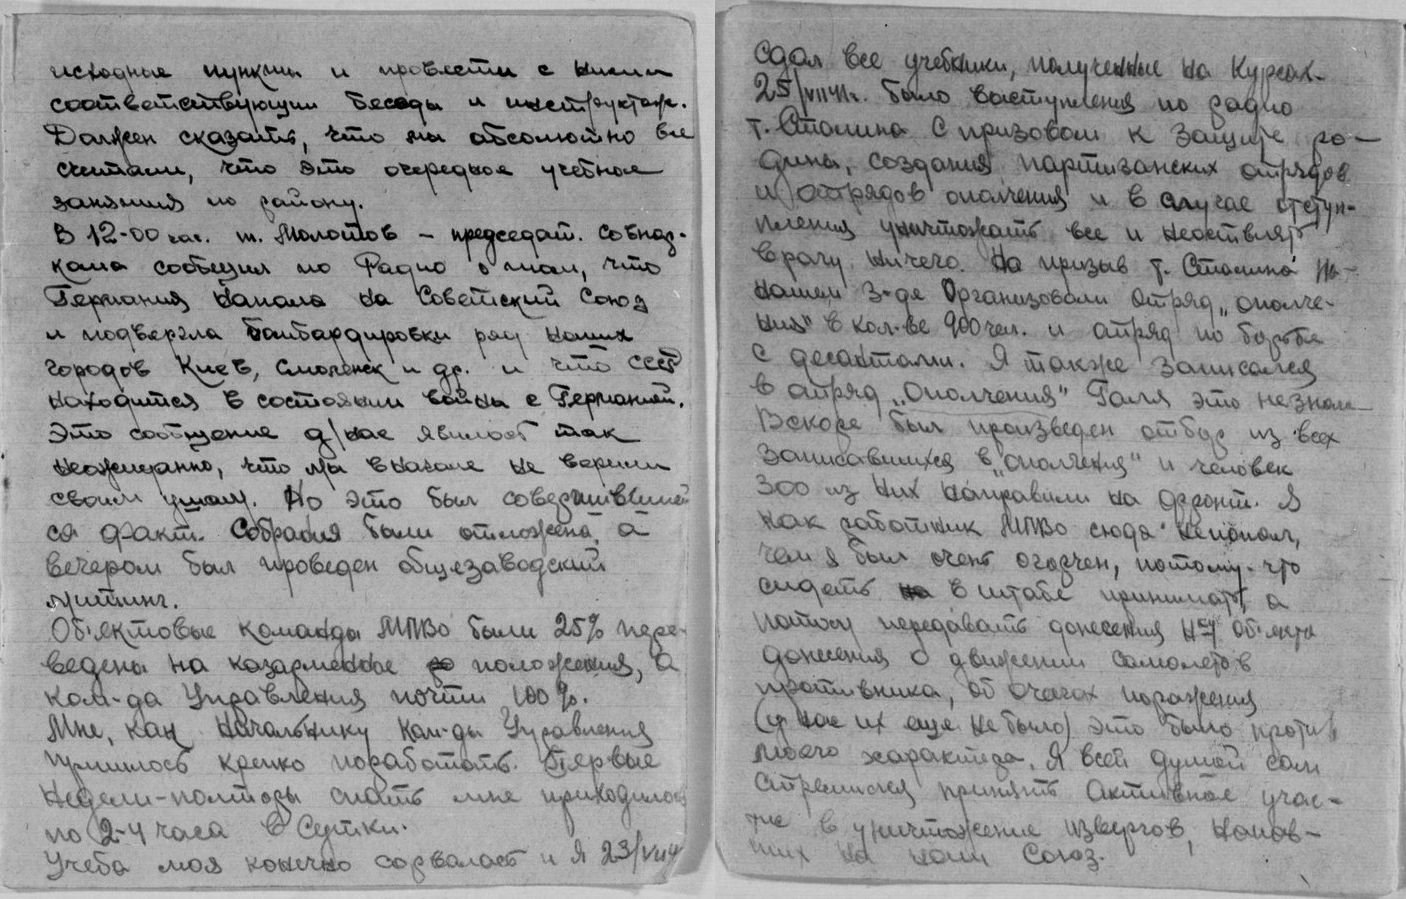 исходные пункты и провести с ними
соответствующии беседы и инструктаж.
Должен сказать, что мы абсолютно все
считали, что это очередное учебное
занятия по району.
В 12-00 час. т. Молотов – председат. Совнар-
кома сообщил по Радио о том, что
Германия напала на Советский Союз
и подвергла бомбардировки ряд наших
городов Киев, Смоленск и др. и что СССР
находится в состоянии войны с Германией.
Это сообщение д/нас явилось так
неожиданно, что мы вначале не верили
своим ушам. Но это был совершившей
ся факт. Собрания были отложена, а
вечером был проведен общезаводский
митинг.
Об'ектовые команды МПВО были 25% пере-
ведены на казарменное положения, а
ком-да Управления почти 100%.
Мне, как Начальнику ком-ды Управления
пришлось крепко поработать. Первые
недели-полторы спать мне приходилось
по 2-4 часа в Сутки.
Учеба моя конечно сорвалась и я 23/VII 41
Сдал все учебники, полученные на Курсах.
25/VII 41г. было выступления по радио
т. Сталина с призовом к защите ро-
дины, создания партизанских отрядов
и отрядов ополчения и в случае отступ-
пления уничтожать все и неоствлят
врагу ничего. На призыв т. Сталина на-
нашем з-де Организовали отряд „ополче-
ния" в кол-ве 900 чел. и отряд по борьбе
с десантами. Я также записался
в отряд „Ополчения" Галя это не знала
Вскоре был произведен отбор из всех
записавшихся в „ополчения" и человек
300 из них направили на фронт. Я
как работник МПВО сюда непопал,
чем я был очень огорчен, потому-что
сидеть в штабе принимать, а
потом передавать донесения об'екта
донесения о движении самолетов
противника, об очагах поражения
(у нас их еще не было) это было против
моего характера. Я всей думой сам
стремился принять Активное учас-
тие в уничтожение извергов, напав-
ших на наш Союз.